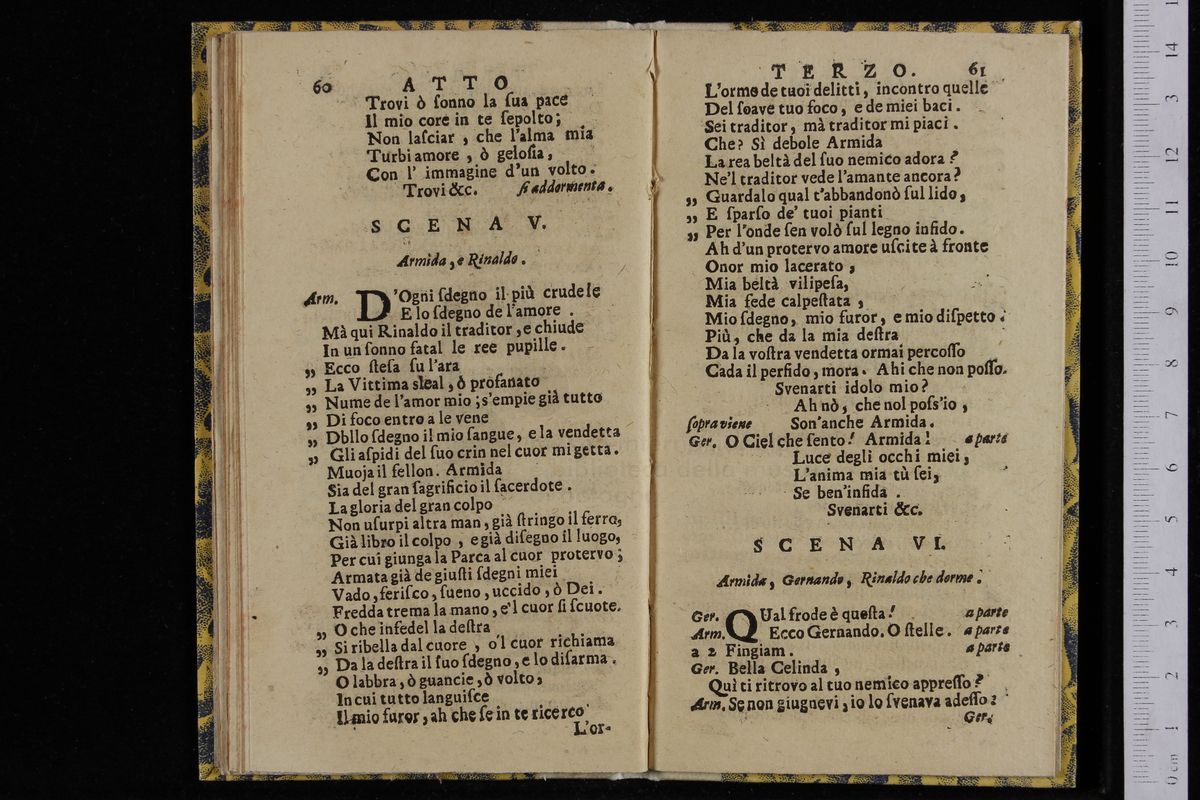 60 ATTO
Trovi ò ſonno la ſua pace
Il mio core in te ſepolto;
Non laſciar, che l'alma mia
Turbi amore, ò geloſia,
Con l' immagine d'un volto.
Trovi &c. ſi addormenta.
SCENA V.
Armida, e Rinaldo.
Arm. D'Ogni ſdegno il più crudele
E lo ſdegno de l'amore.
Mà qui Rinaldo il traditor, e chiude
In un ſonno fatal le ree pupille.
„ Ecco ſteſa ſu l'ara
„ La Vittima sleal, ò profanato
„ Nume de l'amor mio; s'empie già tutto
„ Di foco entro a le vene
„ Dbllo ſdegno il mio ſangue, e la vendetta
„ Gli aſpidi del ſuo crin nel cuor mi getta.
Muoja il fellon. Armida
Sia del gran ſagrificio il ſacerdote.
La gloria del gran colpo
Non uſurpi altra man, già ſtringo il ferro,
Già libro il colpo, e già diſegno il luogo,
Per cui giunga la Parca al cuor protervo;
Armata già de giuſti ſdegni miei
Vado, feriſco, ſueno, uccido, ò Dei.
Fredda trema la mano, e'l cuor ſi ſcuote.
„ O che infedel la deſtra
„ Si ribella dal cuore, o'l cuor richiama
„ Da la deſtra il ſuo ſdegno, e lo diſarma.
O labbra, ò guancie, ò volto,
In cui tutto languiſce
Il mio furor, ah che ſe in te ricerco
L'or-
TERZO. 61
L'orme de tuoi delitti, incontro quelle
Del ſoave tuo foco, e de miei baci.
Sei traditor, mà traditor mi piaci.
Che? Sì debole Armida
La rea beltà del ſuo nemico adora?
Ne'l traditor vede l'amante ancora?
„ Guardalo qual t'abbandonò ſul lido,
„ E ſparſo de' tuoi pianti
„ Per l'onde ſen volò ſul legno infido.
Ah d'un protervo amore uſcite à fronte
Onor mio lacerato,
Mia beltà vilipeſa,
Mia fede calpeſtata,
Mio ſdegno, mio furor, e mio diſpetto.
Più, che da la mia deſtra
Da la voſtra vendetta ormai percoſſo
Cada il perfido, mora. Ahi che non poſſo.
Svenarti idolo mio?
Ah nò, che nol poſs'io,
ſopraviene Son'anche Armida.
Ger. O Ciel che ſento! Armida! a parte
Luce degli occhi miei,
L'anima mia tù ſei,
Se ben'infida.
Svenarti &c.
SCENA VI.
Armida, Gernando, Rinaldo che dorme.
Ger. QUal frode è queſta! a parte
Arm. Ecco Gernando. O ſtelle. a parte
a 2 Fingiam. a parte
Ger. Bella Celinda,
Quì ti ritrovo al tuo nemico appreſſo?
Arm. Se non giugnevi, io lo ſvenava adeſſo?
Ger.